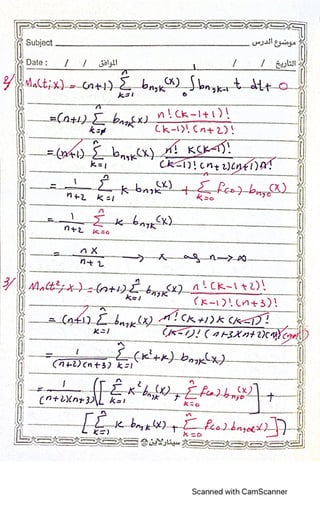 Subject موضوع الدرس
Date : / / الموافق / / التاريخ
2/ Mn(t;x) = (n+1) Σ_{k=1}^{n} b_{n,k}(x) ∫_0^1 b_{n,k-1} t dt + 0
= (n+1) Σ_{k=0}^{n} b_{n,k}(x) n! (k-1+1)! / (k-1)! (n+2)!
= (n+1) Σ_{k=1}^{n} b_{n,k}(x) n! k(k-1)! / (k-1)! (n+2)(n+1)n!
= 1/(n+2) Σ_{k=1}^{n} k b_{n,k}(x) + Σ_{k=0}^{n} f(0) b_{n,0}(x)
= 1/(n+2) Σ_{k=0}^{n} k b_{n,k}(x)
= nx/(n+2) → x as n → ∞
3/ Mn(t²;x) = (n+1) Σ_{k=1}^{n} b_{n,k}(x) n! (k-1+2)! / (k-1)! (n+3)!
= (n+1) Σ_{k=1}^{n} b_{n,k}(x) n! (k+1) k (k-1)! / (k-1)! (n+3)(n+2)(n+1)n!
= 1/((n+2)(n+3)) Σ_{k=1}^{n} (k²+k) b_{n,k}(x)
= 1/((n+2)(n+3)) [[Σ_{k=1}^{n} k² b_{n,k}(x) + Σ_{k=0}^{n} f(0) b_{n,0}(x)] +
[Σ_{k=1}^{n} k b_{n,k}(x) + Σ_{k=0}^{n} f(0) b_{n,0}(x)]]
سينارلاين
Scanned with CamScanner